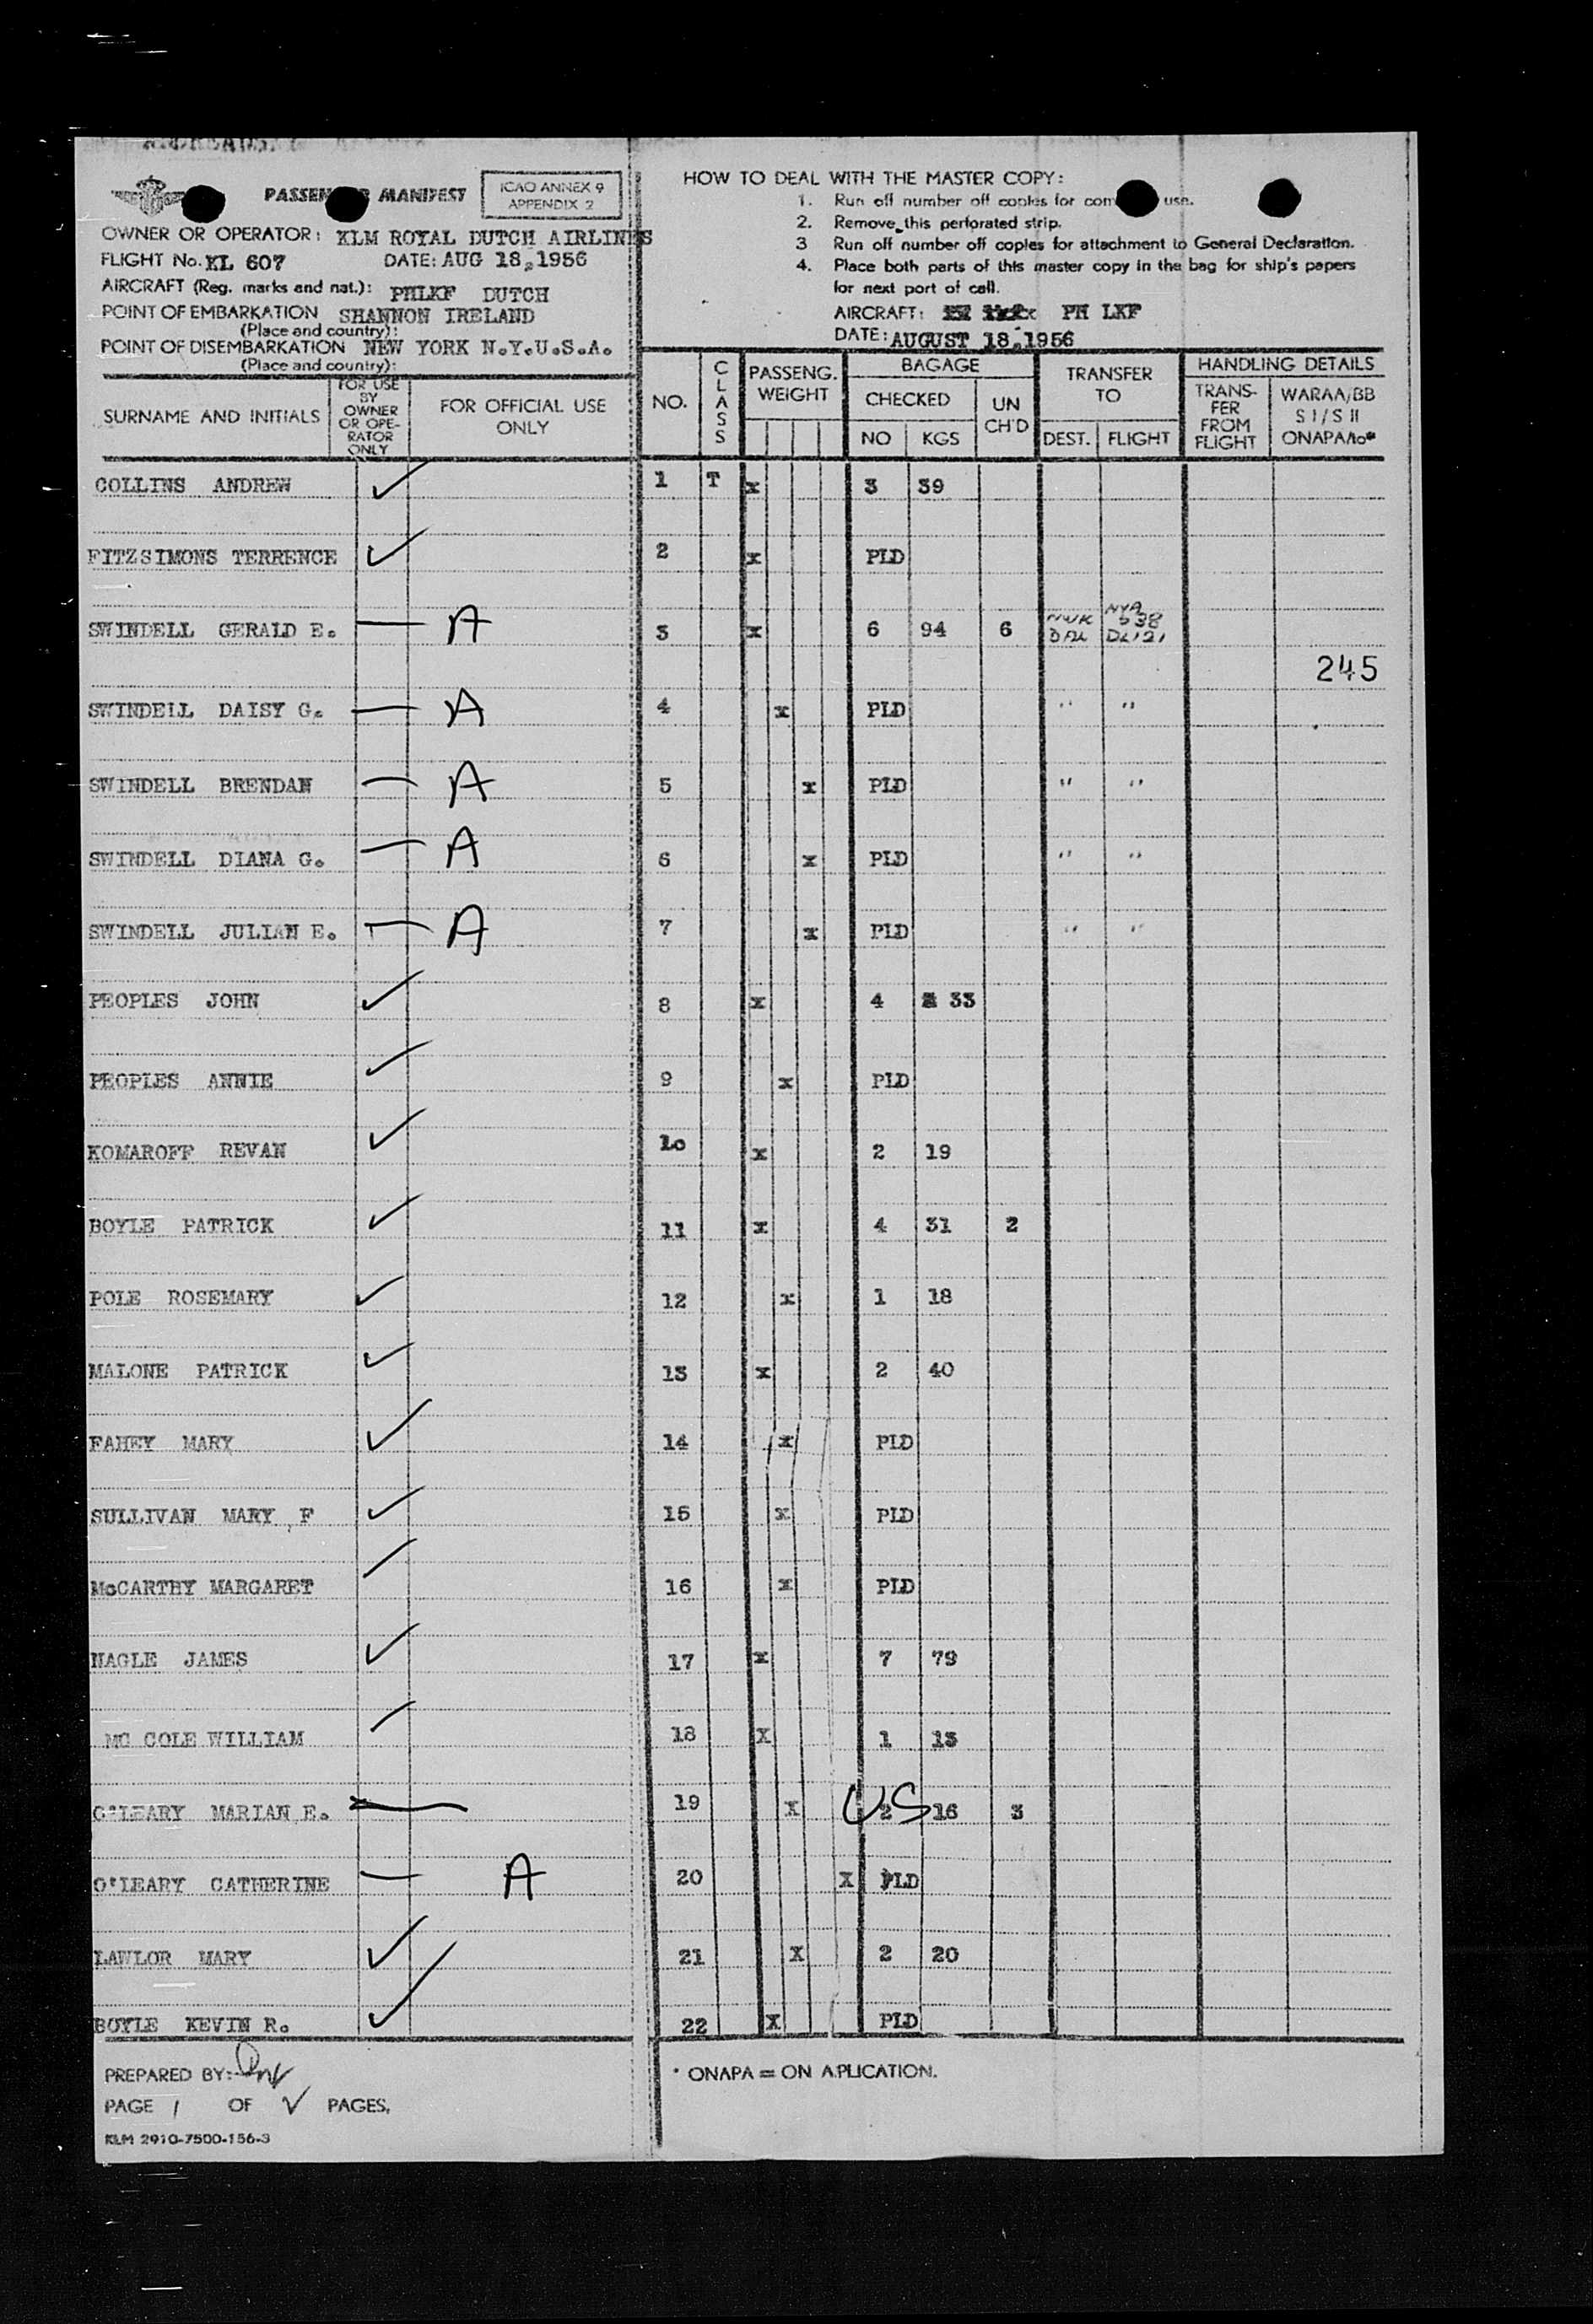 PASSEN MANIFEST
ICAO ANNEX 9
APPENDIX 2
OWNER OR OPERATOR: KLM ROYAL DUTCH AIRLINES
FLIGHT No. KL 607 DATE: AUG 18,1956
AIRCRAFT (Reg. marks and nat.): PHLKF DUTCH
POINT OF EMBARKATION SHANNON IRELAND
(Place and country):
POINT OF DISEMBARKATION NEW YORK N.Y.U.S.A.
(Place and country):
HOW TO DEAL WITH THE MASTER COPY:
1. Run off number off copies for com use.
2. Remove this perforated strip.
3 Run off number off copies for attachment to General Declaration.
4. Place both parts of this master copy in the bag for ship's papers
for next port of call.
AIRCRAFT: PH LKF
DATE: AUGUST 18,1956
SURNAME AND INITIALS FOR USE BY OWNER OR OPE- RATOR ONLY FOR OFFICIAL USE ONLY NO. CLASS PASSENG. WEIGHT BAGAGE CHECKED NO KGS UN CH'D TRANSFER TO DEST. FLIGHT HANDLING DETAILS TRANS- FER FROM FLIGHT WARAA/BB S I / S II ONAPA/to*
COLLINS ANDREW ✓ 1 T x 3 39
FITZSIMONS TERRENCE ✓ 2 x PLD
SWINDELL GERALD E. — A 3 x 6 94 6 NWK DAL NYA 538 DL121
245
SWINDELL DAISY G. — A 4 x PLD " "
SWINDELL BRENDAN — A 5 x PLD " "
SWINDELL DIANA G. — A 6 x PLD " "
SWINDELL JULIAN E. — A 7 x PLD " "
PEOPLES JOHN ✓ 8 x 4 33
PEOPLES ANNIE ✓ 9 x PLD
KOMAROFF REVAN ✓ 1o x 2 19
BOYLE PATRICK ✓ 11 x 4 31 2
POLE ROSEMARY ✓ 12 x 1 18
MALONE PATRICK ✓ 13 x 2 40
FAHEY MARY ✓ 14 x PLD
SULLIVAN MARY F ✓ 15 x PLD
McCARTHY MARGARET ✓ 16 x PLD
NAGLE JAMES ✓ 17 x 7 79
MC COLE WILLIAM ✓ 18 X 1 13
O'LEARY MARIAN E. — 19 X US 2 16 3
O'LEARY CATHERINE — A 20 X PLD
LAWLOR MARY ✓ 21 X 2 20
BOYLE KEVIN R. ✓ 22 X PLD
PREPARED BY:
PAGE 1 OF PAGES.
* ONAPA = ON APLICATION.
KLM 2910-7500-156-3